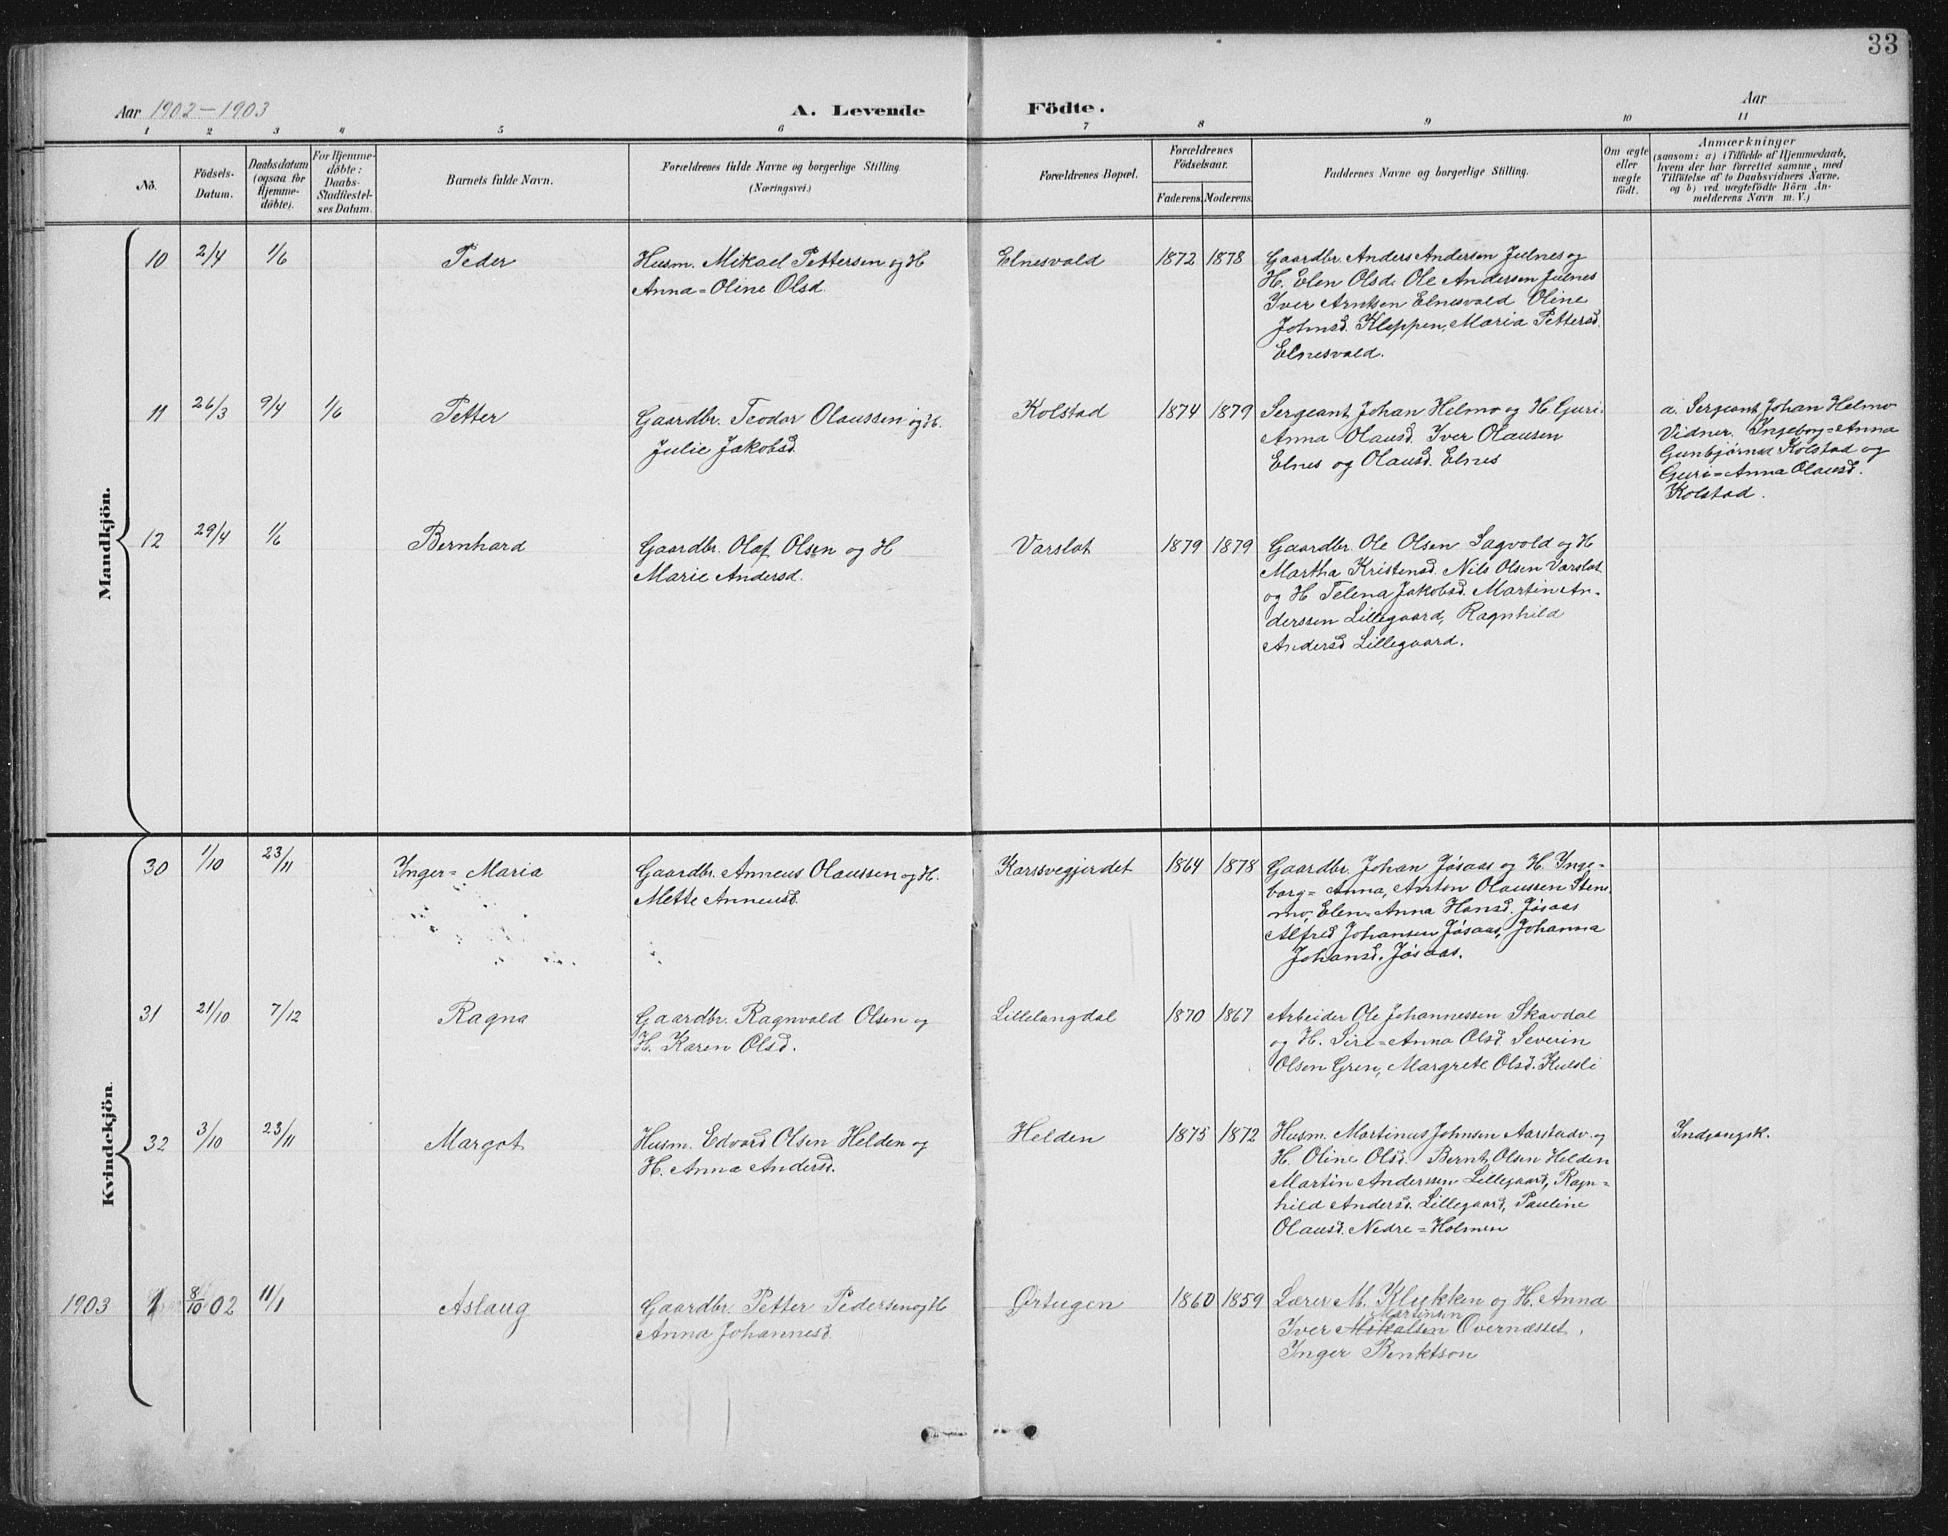 33
Aar 1902-1903
A. Levende Födte.
Aar
1 2 3 4 5 6 7 8 9 10 11
No.
Födsels-Datum.
Daabsdatum (ogsaa for Hjemme-döbte).
For Hjemme-döbte: Daabs-Stadfæstel-ses Datum.
Barnets fulde Navn.
Forældrenes fulde Navne og borgerlige Stilling.
(Næringsvei.)
Forældrenes Bopæl.
Forældrenes Födselsaar.
Faderens. Moderens.
Faddernes Navne og borgerlige Stilling.
Om ægte eller uægte födt.
Anmærkninger
(saasom: a) i Tilfælde af Hjemmedaab,
hvem der har forrettet samme, med
Tilföielse af to Daabsvidners Navne.
og b) ved uægtefödte Börn An-
melderens Navn m. V.)
Mandkjön.
10 2/4 1/6 Peder
Husm. Mikael Pettersen og H
Anna=Oline Olsd.
Elnesvold 1872 1878
Gaardbr. Anders Andersen Julnes og
H. Elen Olsd. Ole Andersen Julnes
Iver Arntsen Elnesvold Oline
Johnsd. Kleppen, Maria Pettersd.
Elnesvold.
11 26/3 9/4 1/6 Petter
Gaardbr. Teodor Olaussen og H.
Julie Jakobsd.
Kolstad 1874 1879
Sergeant Johan Helmo og H. Guri-
Anna Olausd. Iver Olausen
Elnes og Olausd. Elnes
a. Sergeant Johan Helmo
Vidner. Ingeborg=Anna
Gunbjørnsd Kolstad og
Guri=Anna Olausd.
Kolstad.
12 29/4 1/6 Bernhard
Gaardbr. Olaf Olsen og H
Marie Andersd.
Varslot 1879 1879
Gaardbr. Ole Olsen Sagvold og H
Martha Kristensd. Nils Olsen Varslot
og H Telena Jakobsd. Martin An-
derssen Lillegaard, Ragnhild
Andersd Lillegaard.
Kvindekjön.
30 1/10 23/11 Inger=Maria
Gaardbr. Anneus Olaussen og H.
Mette Anneusd.
Karssvegjerdet 1864 1878
Gaardbr. Johan Jøsaas og H. Inge-
borg=Anna, Anton Olaussen Sten
mo, Elen=Anna Hansd. Jøsaas
Alfred Johansen Jøsaas, Johanna
Johansd. Jøsaas.
31 21/10 7/12 Ragna
Gaardbr. Ragnvald Olsen og
H. Karen Olsd.
Lillelangdal 1870 1867
Arbeider Ole Johannessen Skavdal
og H. Siri=Anna Olsd Severin
Olsen Gren, Margrete Olsd. Kulsli
32 3/10 23/11 Margot
Husm. Edvard Olsen Helden og
H. Anna Andersd.
Helden 1875 1872
Husm. Martinus Johnsen Aarstadv. og
H. Oline Olsd. Bernt Olsen Helden
Martin Anderssen Lillegaard, Ragn=
hild Andersd. Lillegaard, Pauline
Olausd. Nedre=Holmen
Indgangsk.
1903 1 8/10 02 11/1 Aslaug
Gaardbr. Petter Pedersen og H
Anna Johannesd.
Ørtugen 1860 1859
Lærer M. Klykken og H. Anna
Martinsen
Iver Mikalsen Overnæsset,
Inger Benktson